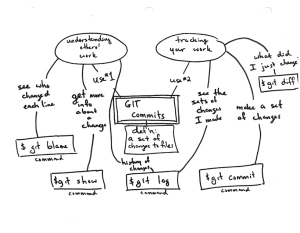 understanding
others'
work
tracking
your work
what did
I just change?
$ git diff
see who
changed
each line
get more
info
about
a
change
use #1
GIT
commits
def'n:
a set of
changes to files
use #2
see the
sets of
changes
I made
make a set
of changes
$ git blame
command
history of
changes
$ git show
command
$ git log
command
$ git commit
command